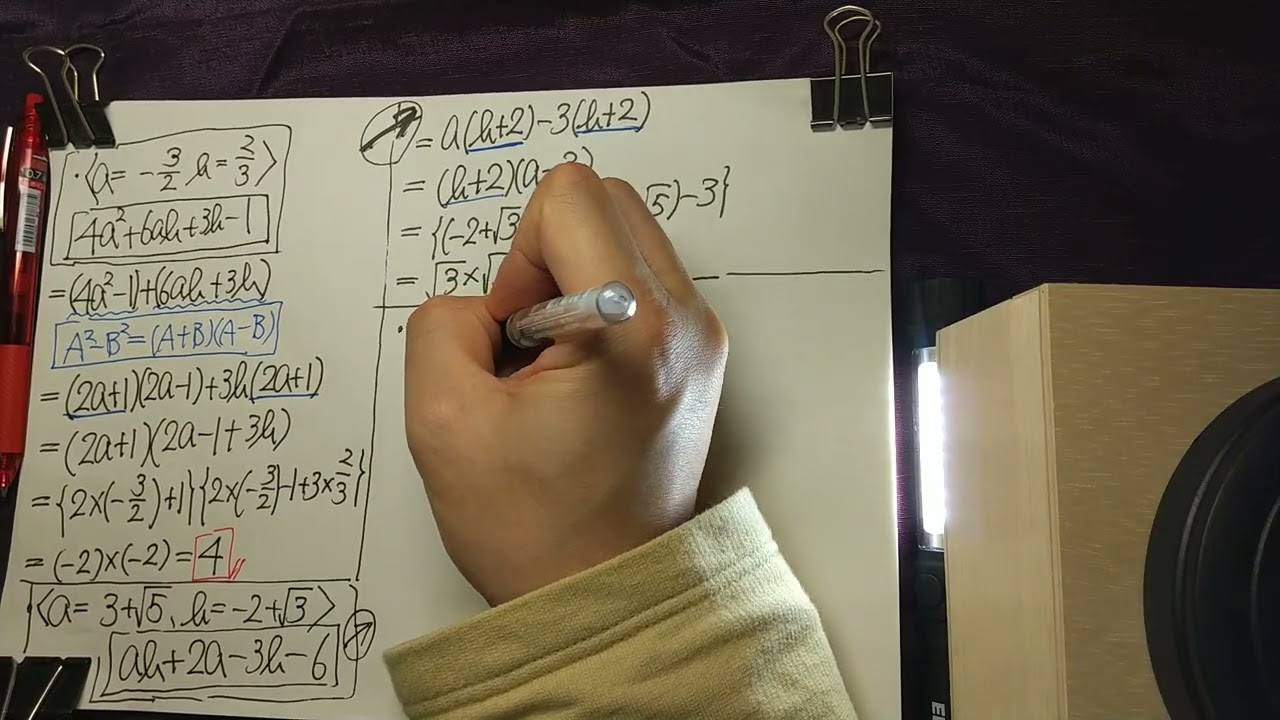 ・〈a = -3/2 b = 2/3〉
4a²+6ab+3b-1
=(4a²-1)+(6ab+3b)
A²-B²=(A+B)(A-B)
=(2a+1)(2a-1)+3b(2a+1)
=(2a+1)(2a-1+3b)
={2×(-3/2)+1}{2×(-3/2)-1+3×2/3}
=(-2)×(-2)=4
〈a= 3+√5、b=-2+√3〉
ab+2a-3b-6
= a(b+2)-3(b+2)
= (b+2)(a-3)
= {(-2+√3 √5)-3}
= √3×√